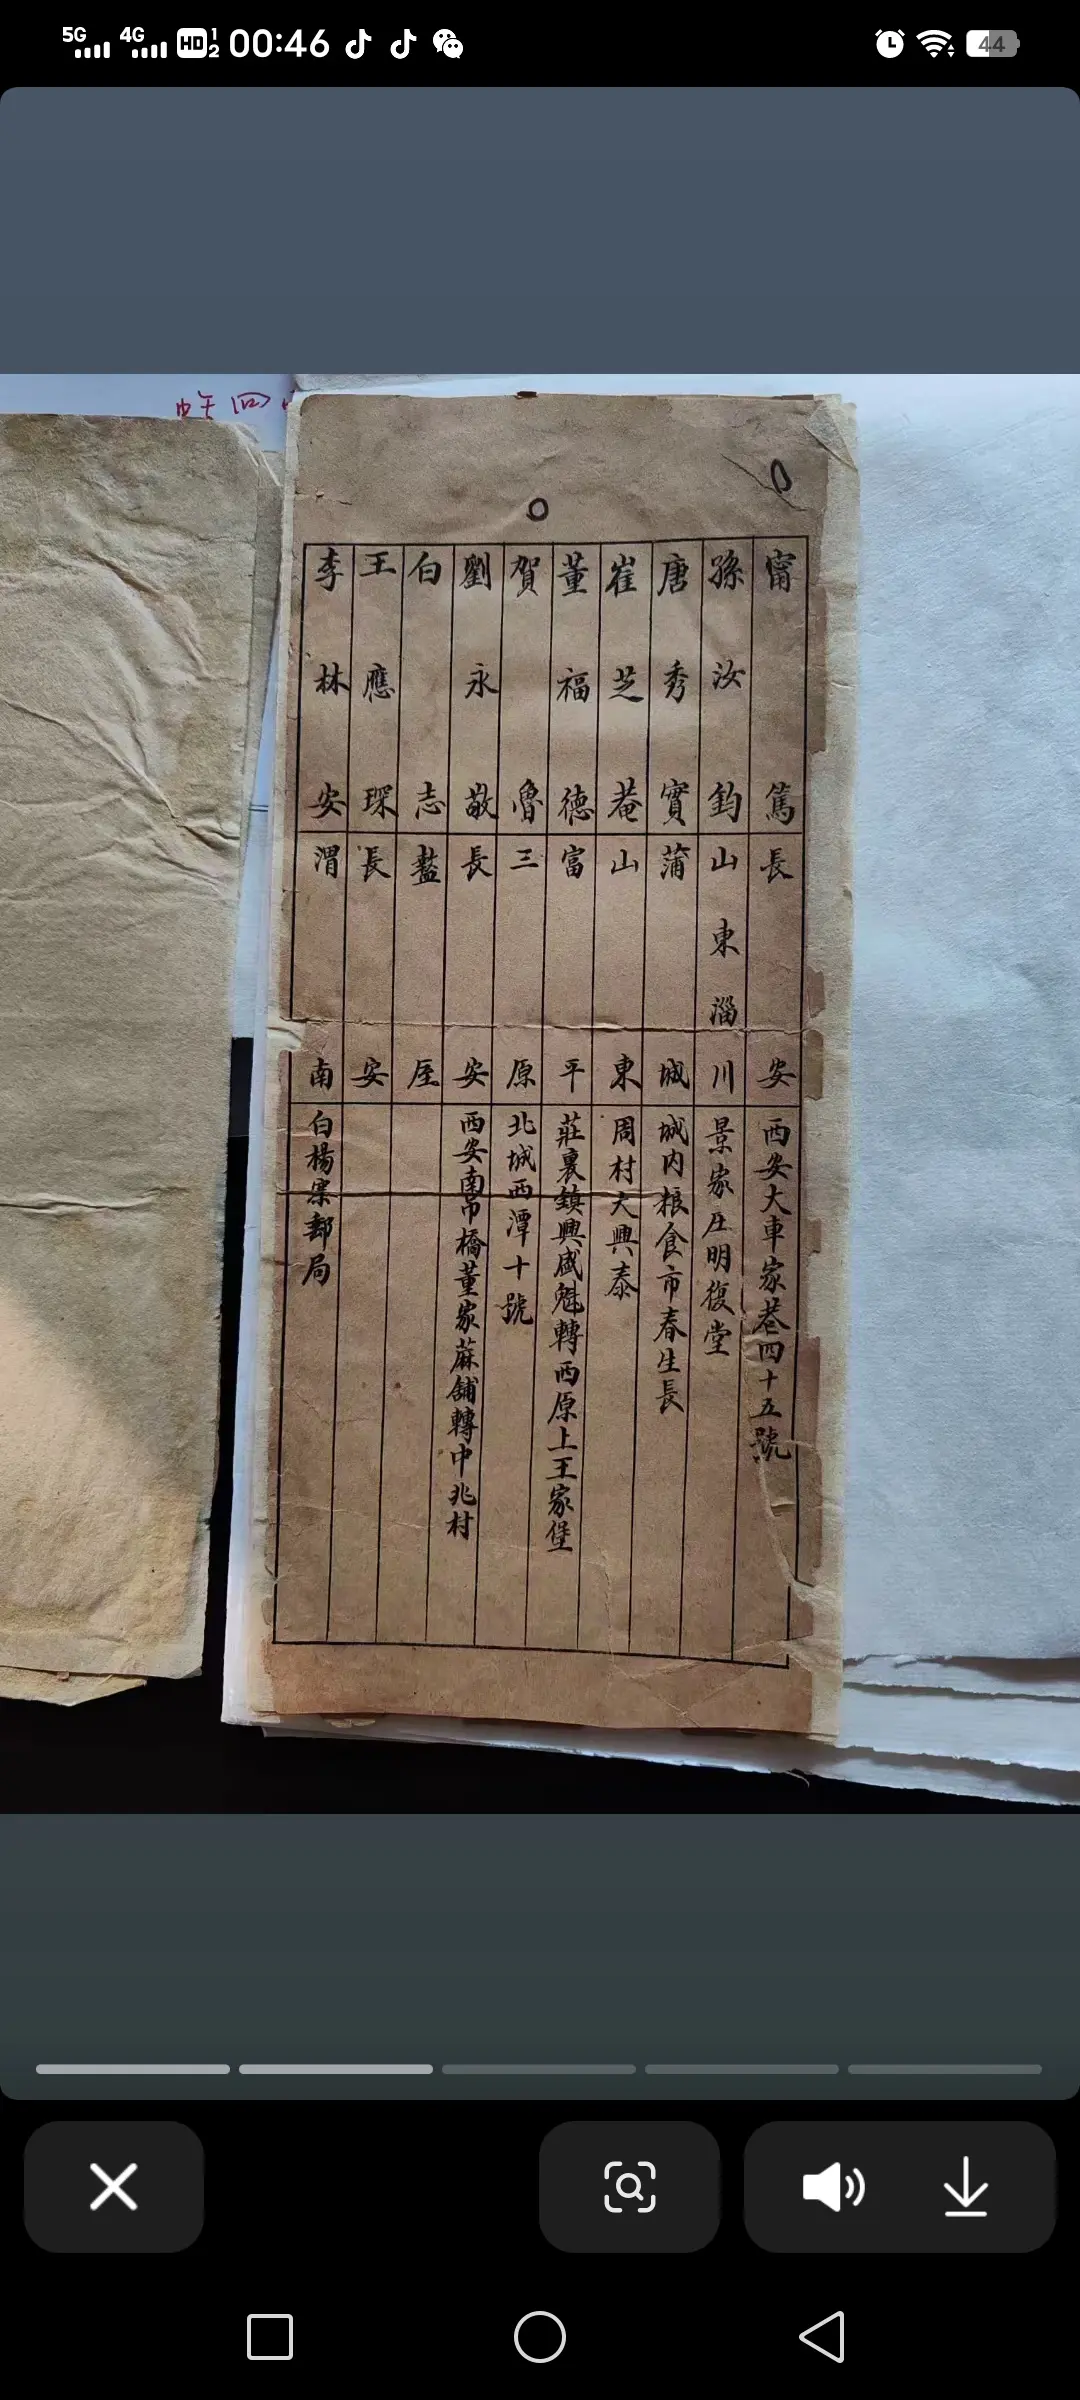 5G 4G HD 1 2 00:46 44
甯篤 長安 西安大車家巷四十五號
孫汝鈞 山東淄川 景家庄明復堂
唐秀實 蒲城 城内粮食市春生長
崔芝菴 山東 周村大興泰
董福德 富平 莊裏鎮興盛魁轉西原上王家堡
賀魯 三原 北城西潭十號
劉永敬 長安 西安南吊橋董家蔴舖轉中兆村
白志 盩厔
王應琛 長安
李林安 渭南 白楊寨郵局